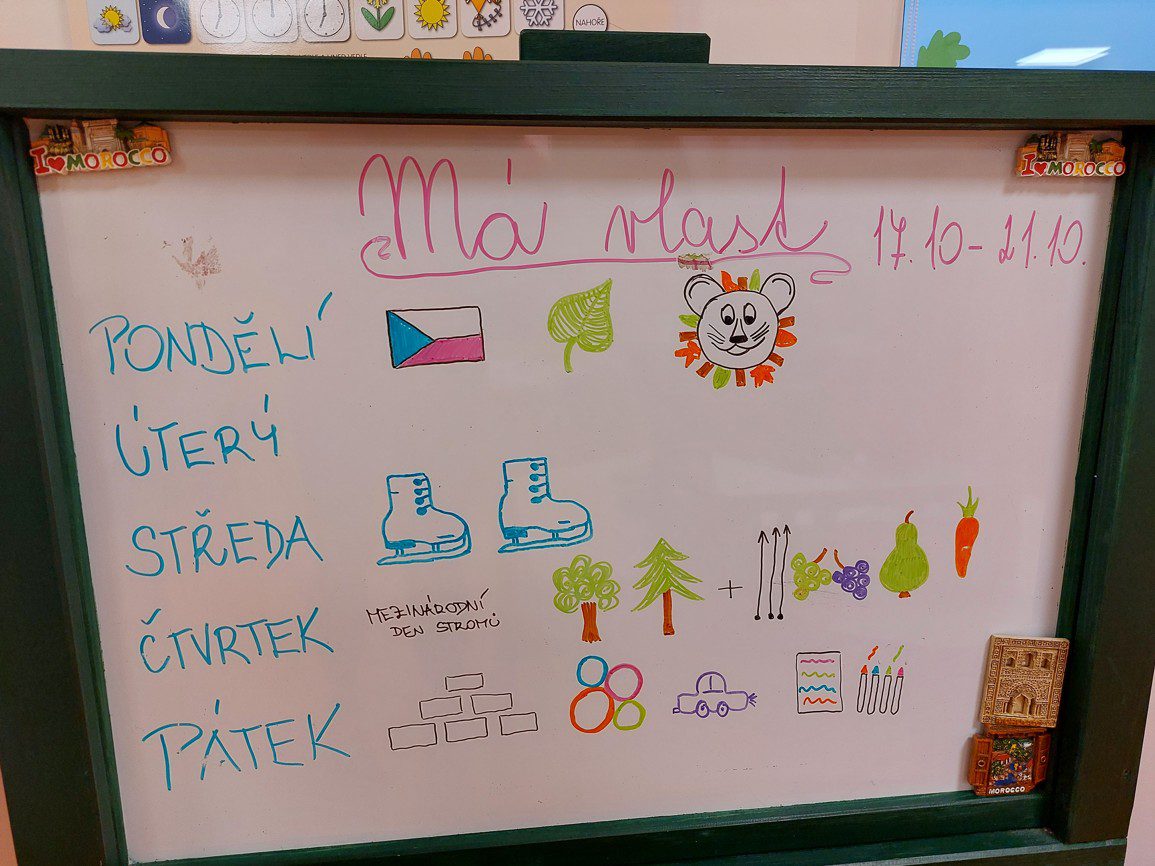 NAHOŘE
I MOROCCO
I MOROCCO
Má vlast 17.10-21.10.
PONDĚLÍ
ÚTERÝ
STŘEDA
ČTVRTEK MEZINÁRODNÍ
DEN STROMŮ
+
PÁTEK
MOROCCO